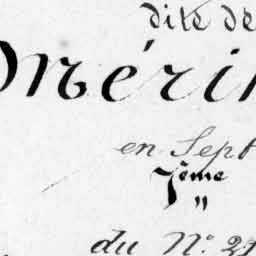 dite de
Méri
en Sept
7ème
"
du N° 21